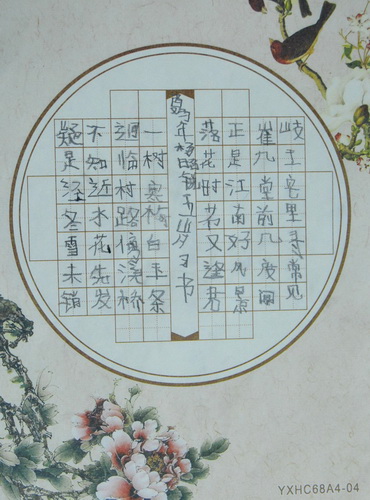 岐王宅里寻常见
崔九堂前几度闻
正是江南好风景
落花时若又逢君
年书
一树寒梅白玉条
迥临村路傍溪桥
不知近水花先发
疑是经冬雪未销
YXHC68A4-04